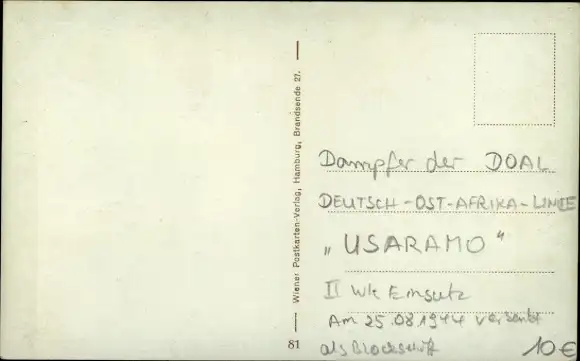 Wiener Postkarten-Verlag, Hamburg, Brandsende 27.
Dampfer der DOAL
DEUTSCH-OST-AFRIKA-LINIE
„USARAMO“
II Wk Einsatz
Am 25.08.1944 versenkt
als Blockschiff
81
10€